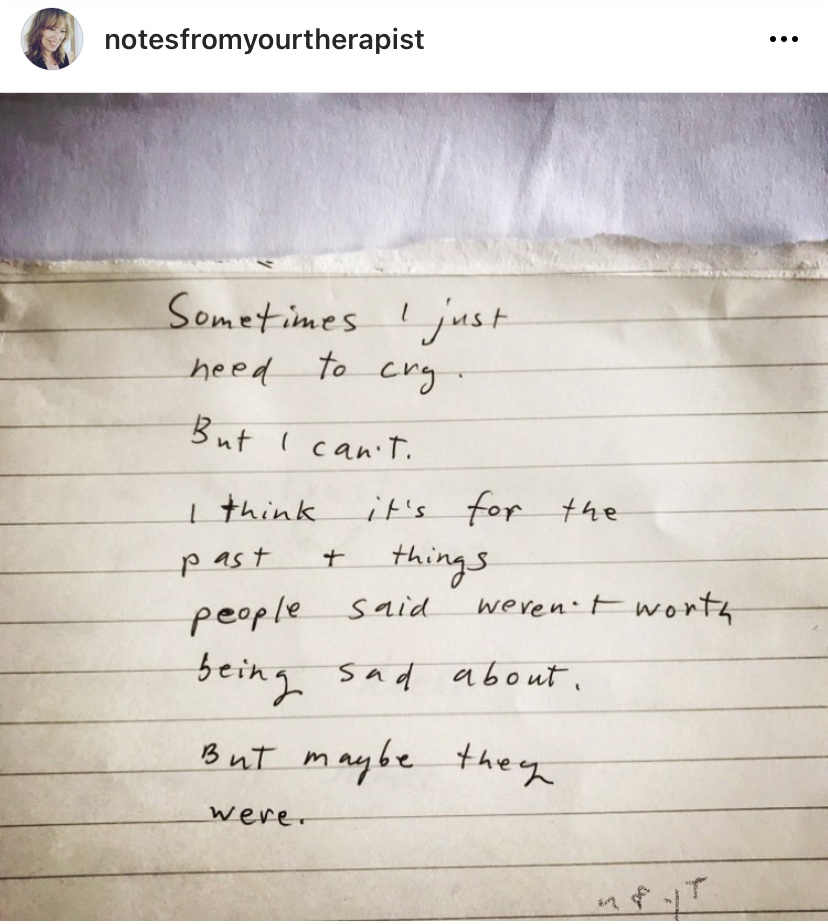 notesfromyourtherapist
Sometimes I just
need to cry.
But I can't.
I think it's for the
past + things
people said weren't worth
being sad about.
But maybe they
were.
nfyT